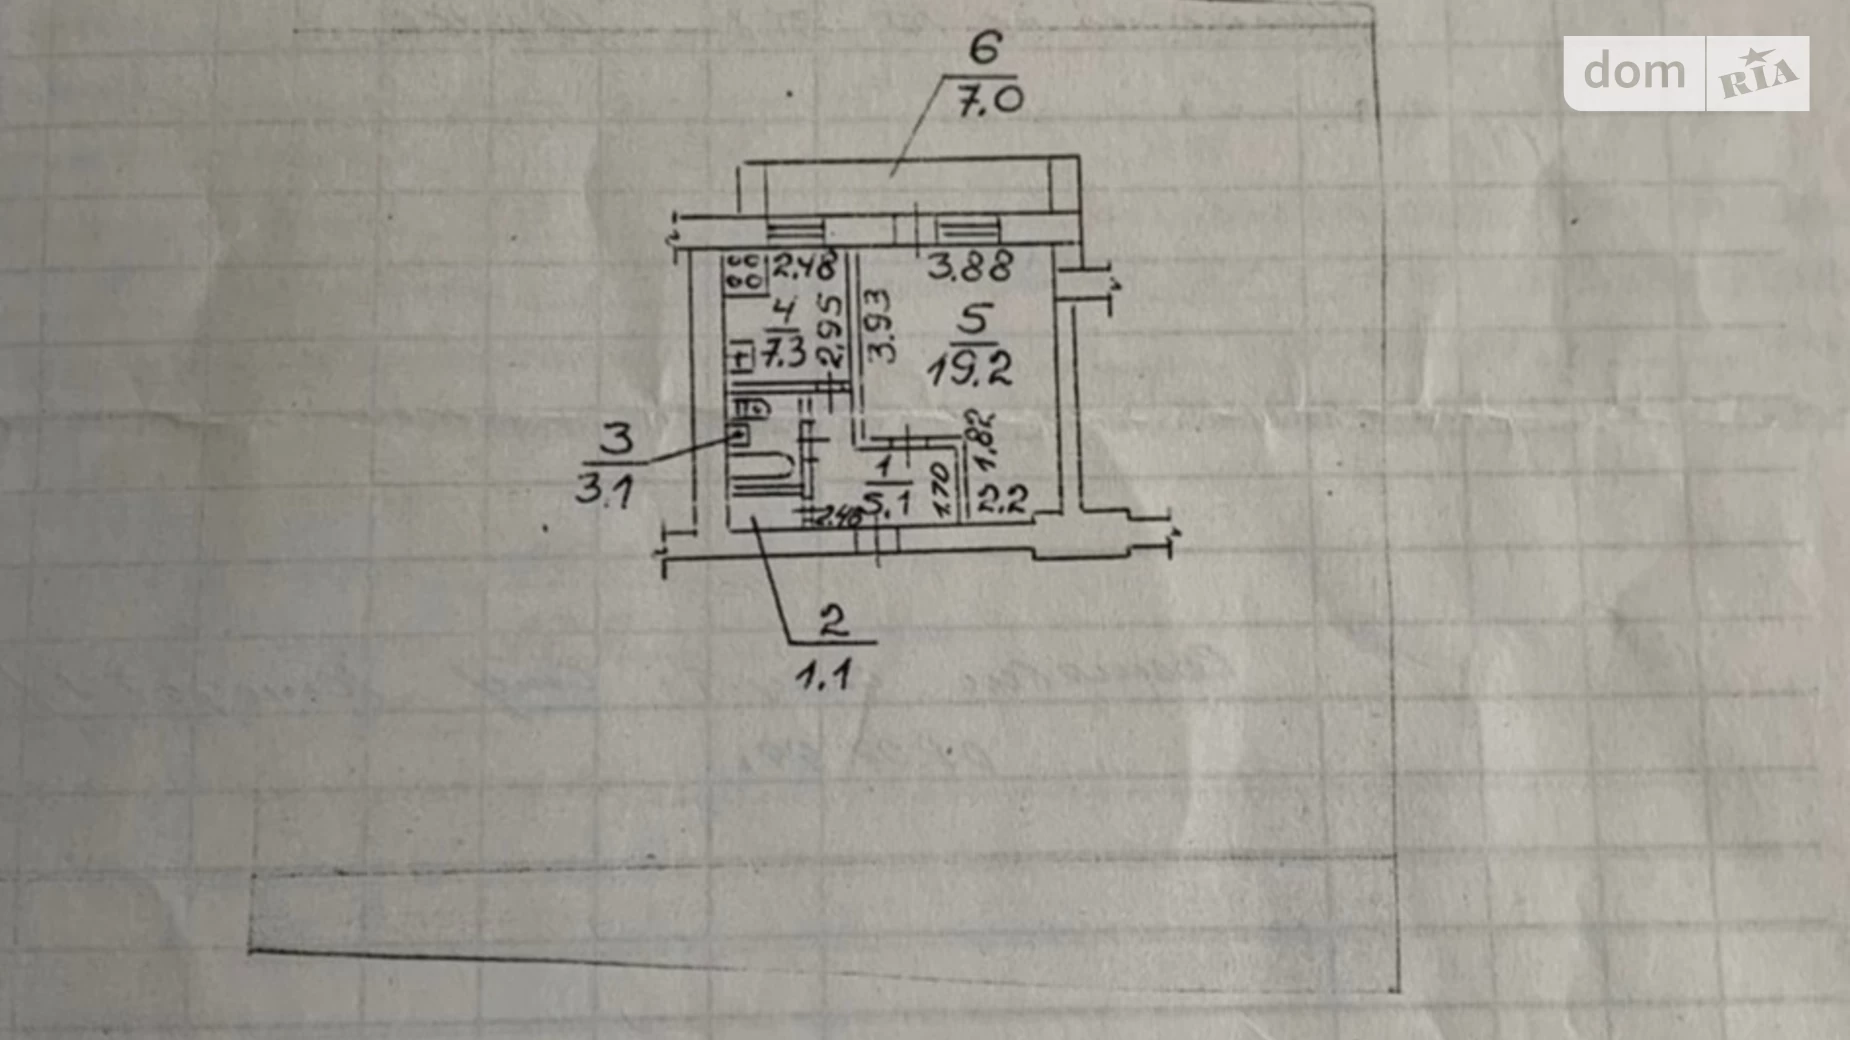 6
7.0
dom RIA
2.48
3.88
4
7.3
2.95
3.93
5
19.2
3
3.1
1
5.1
1.70
1.82
2.2
2.48
2
1.1